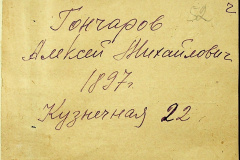 Гончаров
Алексей Михайлович
1897г.
Кузнечная 22